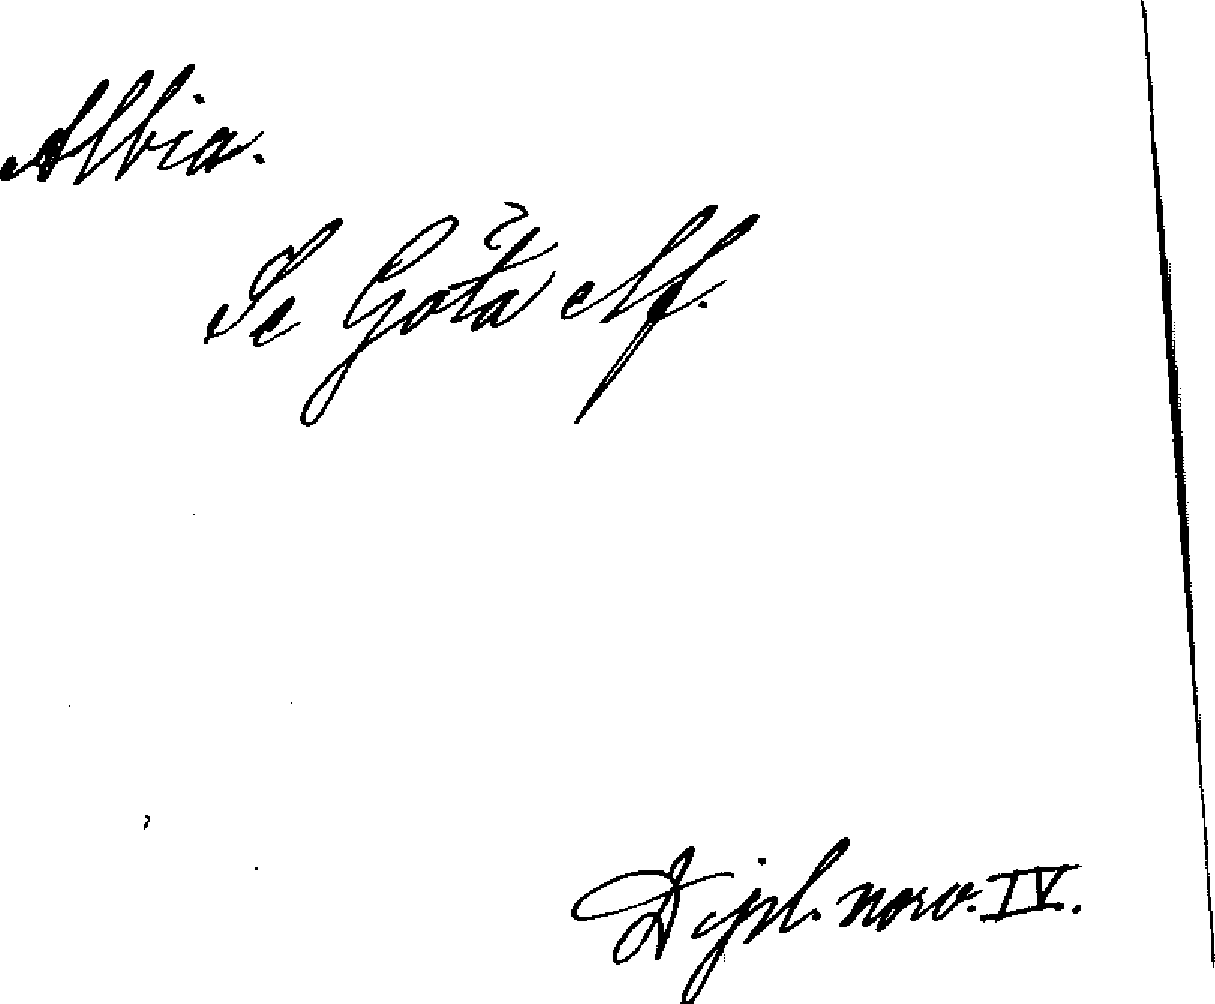 Albia.
Se Göta Elf.
Dipl. norv. IV.